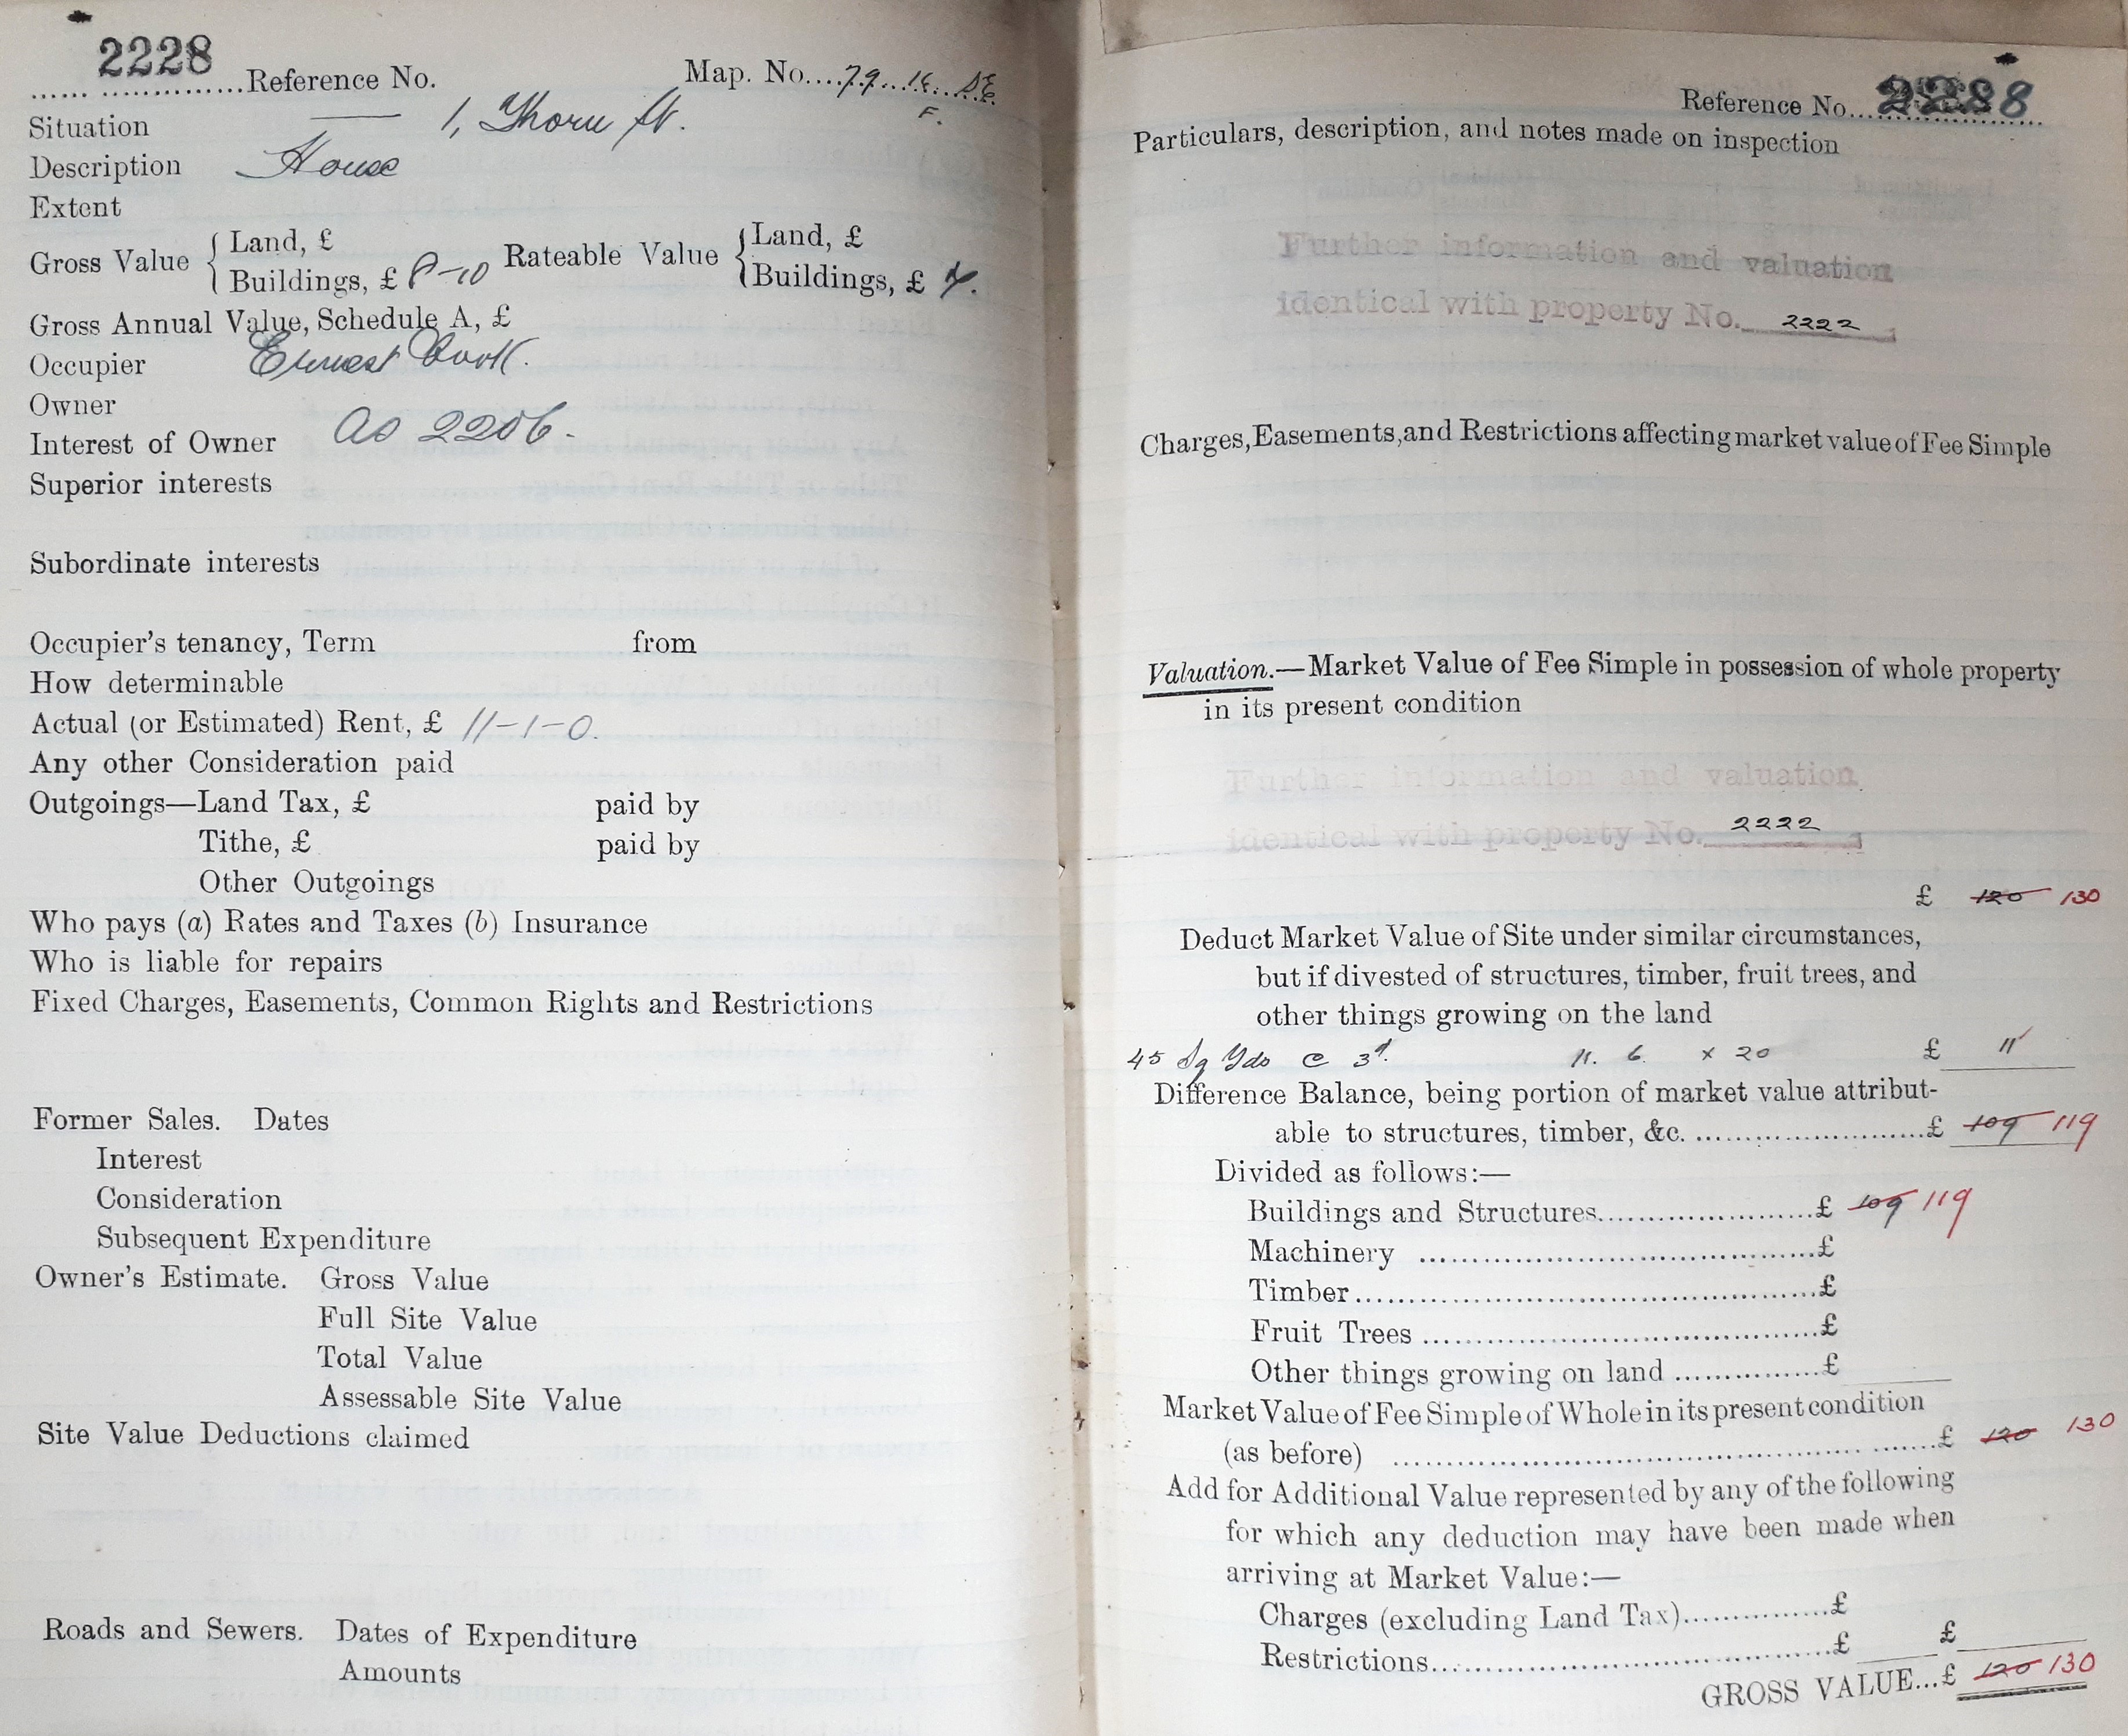 2228
Reference No. Map. No. 79. 14. SE
F.
Situation 1, Thorn St.
Description House
Extent
Gross Value { Land, £ Rateable Value { Land, £
Buildings, £ 8-10 Buildings, £ 7.
Gross Annual Value, Schedule A, £
Occupier Ernest
Owner
Interest of Owner as 2206.
Superior interests
Subordinate interests
Occupier's tenancy, Term from
How determinable
Actual (or Estimated) Rent, £ 11-1-0.
Any other Consideration paid
Outgoings—Land Tax, £ paid by
Tithe, £ paid by
Other Outgoings
Who pays (a) Rates and Taxes (b) Insurance
Who is liable for repairs
Fixed Charges, Easements, Common Rights and Restrictions
Former Sales. Dates
Interest
Consideration
Subsequent Expenditure
Owner's Estimate. Gross Value
Full Site Value
Total Value
Assessable Site Value
Site Value Deductions claimed
Roads and Sewers. Dates of Expenditure
Amounts
Reference No.
Particulars, description, and notes made on inspection
Further information and valuation
identical with property No. 2222
Charges, Easements, and Restrictions affecting market value of Fee Simple
Valuation.—Market Value of Fee Simple in possession of whole property
in its present condition
Further information and valuation
identical with property No. 2222
£ 120 130
Deduct Market Value of Site under similar circumstances,
but if divested of structures, timber, fruit trees, and
other things growing on the land
45 Sq Yds @ 3d. 11. 6. x 20 £ 11
Difference Balance, being portion of market value attribut-
able to structures, timber, &c. £ 109 119
Divided as follows:—
Buildings and Structures £ 109 119
Machinery £
Timber £
Fruit Trees £
Other things growing on land £
Market Value of Fee Simple of Whole in its present condition
(as before) £ 120 130
Add for Additional Value represented by any of the following
for which any deduction may have been made when
arriving at Market Value:—
Charges (excluding Land Tax) £
Restrictions £ £
GROSS VALUE...£ 120 130